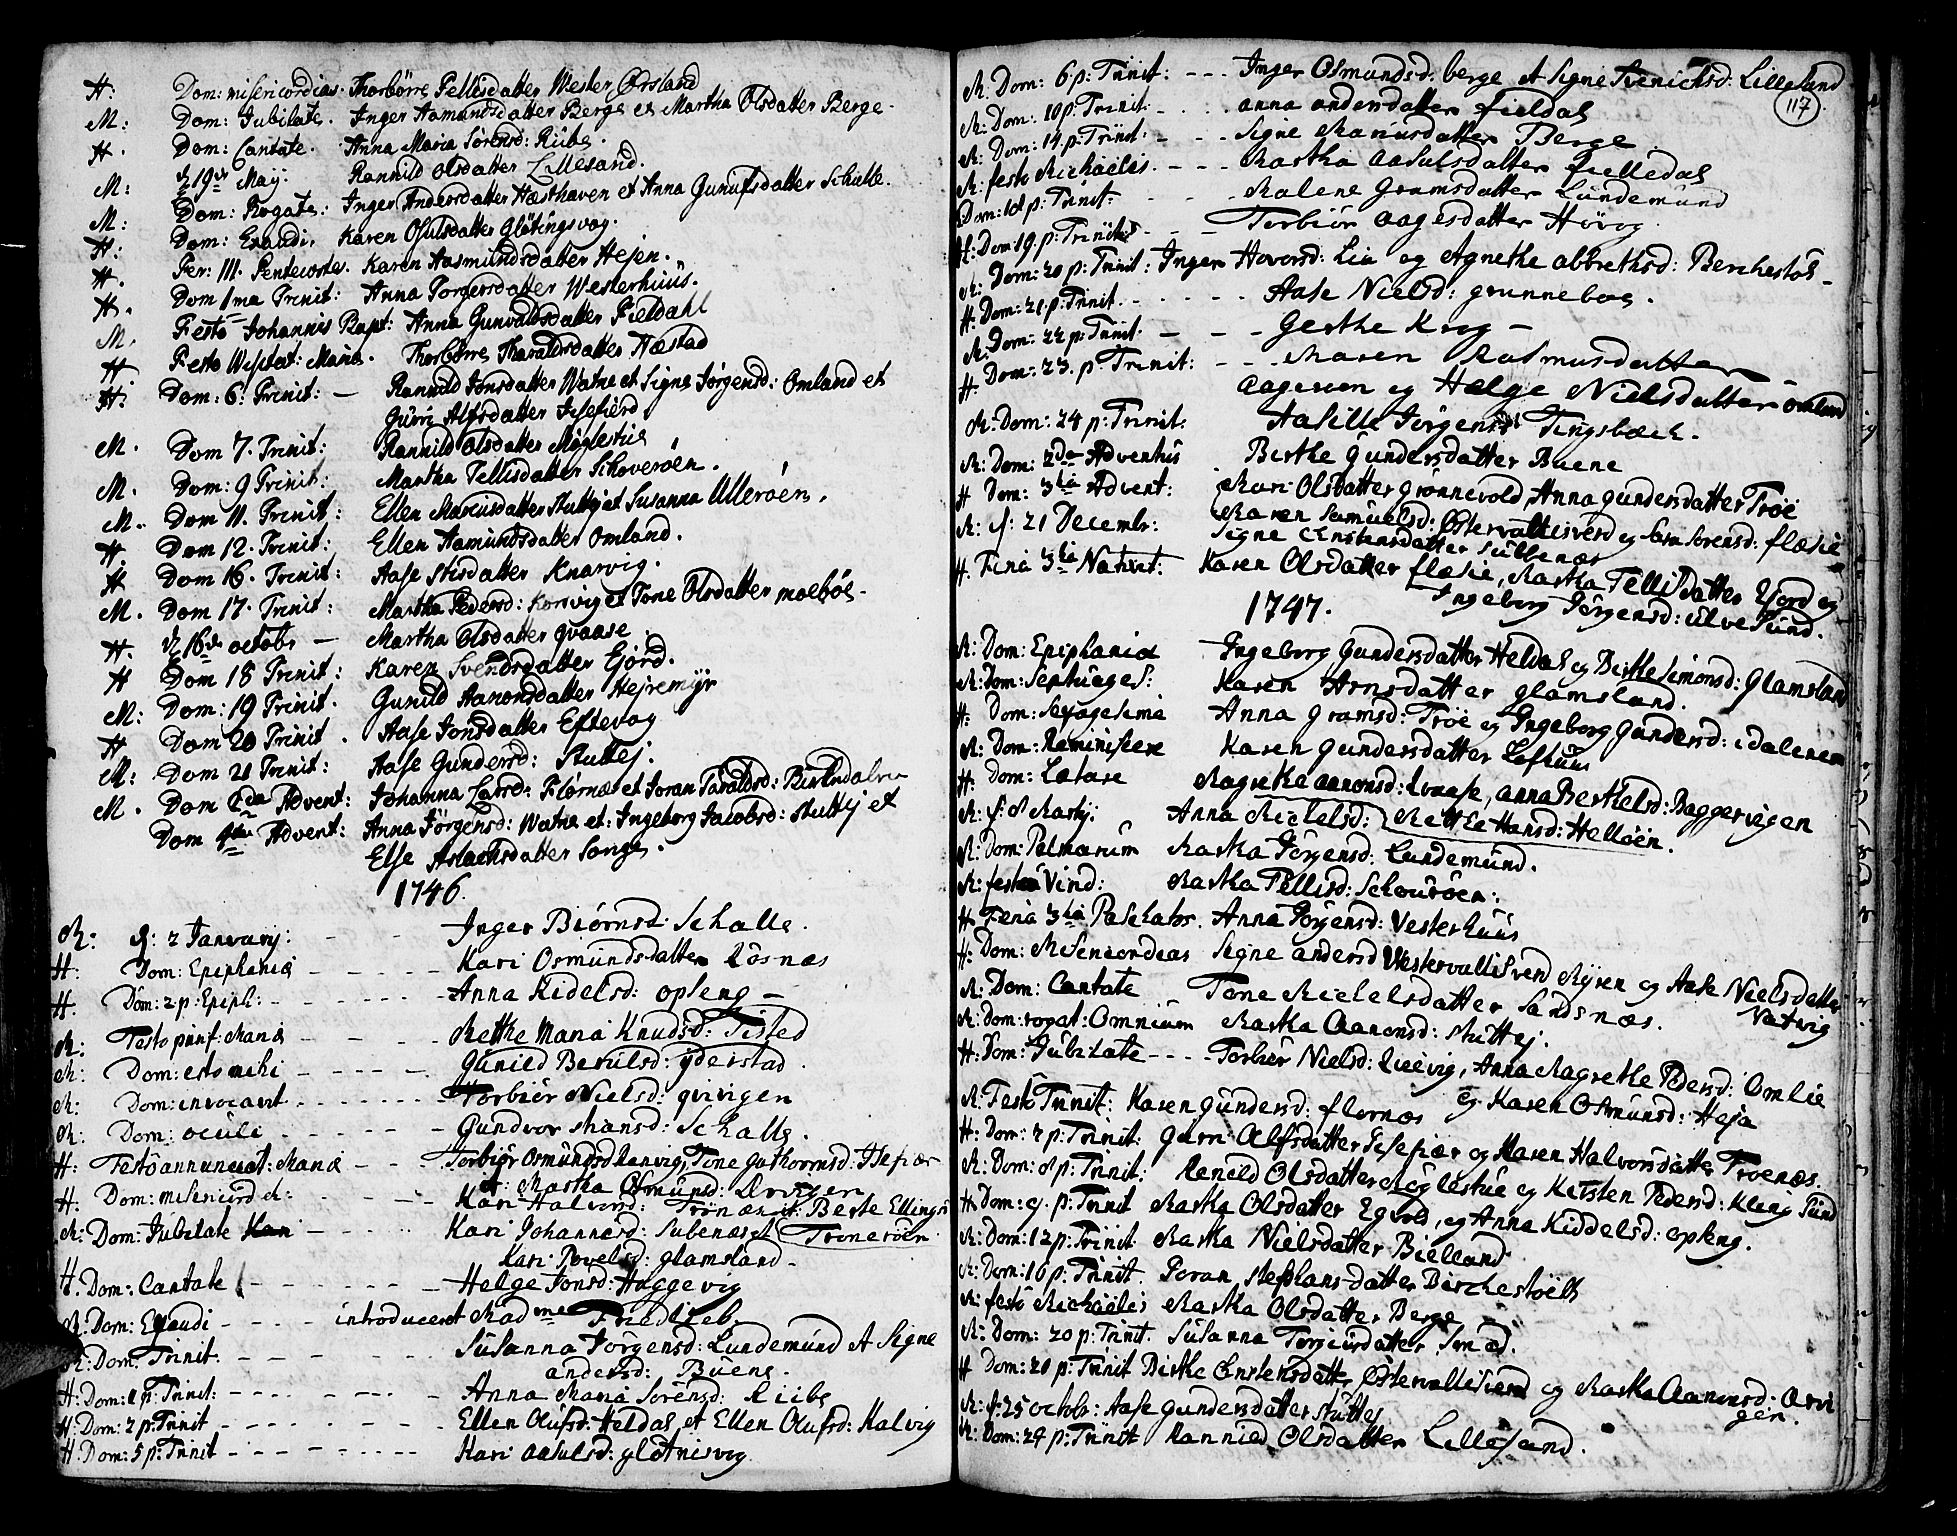 H: Dom: misericordias. Thorbörre Tellisdatter Wester Ørsland
M: Dom: Jubilate. Inger Aamundsdatter Berge et Martha Olsdatter Berge.
H. Dom: Cantate. Anna Maria Sörensd: Riibe.
M: d 19de May: Rannild Olsdatter Lillesand.
M: Dom: Rogate: Inger Andersdatter Hæsthaven et Anna Gunufsdatter Schalle.
H: Dom: Exaudi. Karen Osulsdatter Glötingsvog.
H. Fer: III. Pentecostes. Karen Aasmundsdatter Hejen.
H. Dom 1ma Trinit: Anna Torgersdatter Westerhuus.
M. Festo Johannis Bapt: Anna Gunvaldsdatter Fieldahl
H. Festo Visitat: Maria. Thorbörre Tharaldsdatter Hæstad
H: Dom: 6. Trinit: — Rannild Jonsdatter Watne et Signe Jörgensd: Omland et
Guri Alfsdatter Isefierd.
M. Dom 7. Trinit: Rannild Olsdatter Möglestue
M. Dom: 9 Trinit: Martha Tellisdatter Schoveröen.
M. Dom 11. Trinit: Ellen Mariusdatter Stuttej et Susanna Ulleröen.
H. Dom 12. Trinit: Ellen Aamundsdatter Omland.
H Dom 16. Trinit: Aase Stisdatter Knarvig.
M. Dom 17. Trinit: Martha Pedersd: Korsvig et Tone Olsdatter moeböe.
H. d 16de octobr — Martha Olsdatter qvaase.
H Dom 18 Trinit: Karen Svendsdatter Ejörd.
M: Dom: 19 Trinit. Gunild Aanondsdatter Hejremÿr
H Dom 20 Trinit. Aase Jonsdatter Eftevog
M: Dom 21 Trinit: Aase Gundersd: Stuttej.
M. Dom 2da Advent: Johanna Larsd: Flörnæs et Joran Taraldsd:
Dom 4ta Advent: Anna Jörgensd: Watne et: Ingeborg Jacobsd: Stuttej et
Else Aslachsdatter Songe.
1746.
M: d: 2 January: Inger Biörnsd: Schalle.
H: Dom: Epiphania Kari Osmundsdatter Rosnæs
H. Dom: 2 p: Epiph: Anna Kidelsd: opleng
M: Festo purif: Mariæ Mette Maria Knudsd: Tisted
M: Dom: esto mihi Gunild Berulsd: ÿderstad.
M: Dom: invocavit Torbiör Nielsd: qvivigen
M: Dom: oculi Gundvor Hansd: Schalle.
H: Festo annunciat: Mariæ Torbiör Osmundsd Ranvig, Tone Guthormsd: Isefiær
et Marthа Osmunsd:
H. Dom: misericord: Kari Halvorsd: Trönæs et Berte Ellingsd
M: Dom: Jubilate Kari Johannesd: Subenæs et Troneröen.
Kari Povelsd: glamsland
H. Dom: Cantate Helge Jonsd: Haggevig
M: Dom: Exaudi introduceret Madme Friedlieb.
M: Dom: Trinit: Susanna Jörgensd: Lundemund et Signe
andersd: Buene.
H: Dom: 1 p: Trinit: Anna Maria Sörensd: Riibe
H: Dom: 2 p: Trinit Ellen Olufsd: Heldal et Ellen Olufsd: Kalvig
H: Dom: 5 p: Trinit Kari Aasulsd: glötnisvog
117
M: Dom: 6 p: Trinit: Inger Osmundsd: berge et Signe Henrichsd: Lillesand
M: Dom: 10 p: Trinit: anna andersdatter fieldal
M: Dom: 14 p: Trinit: Signe Mariusdatter Berge
M: festo Michaelis. Martha Aasulsdatter fielledal
Dom: 18 p: Trinit: Malene gramsdatter Lundemund
H: Dom 19. p: Trinit Torbiör aagesdatter Hövog.
M: Dom: 20 p: Trinit: Inger Hoversd: Lia og Agnethe abbrethsd: Berchestöl
H: Dom: 21 p: Trinit. Aase Nielsd: grunneboe.
M: Dom: 22 p: Trinit: Gerthe Krog
H: Dom: 23. p: Trinit: Maren Rasmusdatter
Aageröen og Helge Nielsdatter omland
M: Dom: 24 p: Trinit: Aasille Jörgensd Tingsbæch.
M: Dom: 2da Adventus Berthe Gundersdatter Buene
H Dom: 3tia Advent: Mari Olsdatter grönnevold, Anna gundersdatter Tröe
M: d: 21 Decembr: Maren Samuelsd: Østervallesverd og Sara Sorensd: flæsie
Signe Enstensdatter Subbenæs
H. Feria 3tia Nativit: Karen Olsdatter flæsie, Martha Tellisdatter Ejord og
1747. Ingeborg Jörgensd: ulvesund.
M: Dom: Epiphania Ingeborg Gundersdatter Heldal og Birthe Simonsd: Glamsland
M: Dom: Septuages: Karen Arnsdatter glamsland.
H: Dom: Sexagesima Anna gramsd: Tröe og Ingeborg Gundersd: i dalenem
M: Dom: Reminiscere Karen gundersdatter Lofhuus
H: Dom: Lætare Magrethe aanonsd: Qvaase, anna Berthelsd: Baggerviigen
M: d: 8 Martij: Anna Michelsd: Methe Hansd: Hellöen.
M: Dom: Palmarum Martha Jörgensd: Lundemund.
M: festo Vind: Martha Tellisd: Schouröen.
H: Feria 3tia Paschatos. Anna Jörgensd: Vesterhuus
H: Dom: Misericordias Signe andersd Westervallisverd Myren og Aase Nielsdatter
Natvig
M: Dom: Cantate Tone Michelsdatter Sandsnæs.
M: Dom: rogat: Omnium Martha Aanonsd: Stuttej.
H: Dom: Jubilate Torbiör Nielsd: Qvevig, Anna Magrethe Pedersd: Omlie
og Karen Osmunsd: Heja
M: Festo Trinit: Karen gundersd: flornæs
H: Dom: 2 p: Trinit: Guri Alfsdatter Isefiær og Maren Halvorsdatter Troenæs.
M: Dom: 8 p: Trinit: Renild Olsdatter Möglestue og Kirsten Pedersd: Kling Sund
H: Dom: 9. p: Trinit Martha Olsdatter Egvold, og Anna Kiddelsd: opleng.
M: Dom: 12 p: Trinit Martha Nielsdatter Bielland
M: Dom: 16 p: Trinit. Joran Stephansdatter Birchestöels
M: festo Michaelis Martha Olsdatter Berge
M: Dom: 20 p: Trinit. Susanna Torgiusdatter
H Dom: 20 p: Trinit Birthe Enstensdatter Østervallesverd og Martha Aanonsd:
M: d: 25 octobr: Aase gundersdatter Stuttej
M: Dom: 24 p: Trinit Rannild Olsdatter Lillesand.